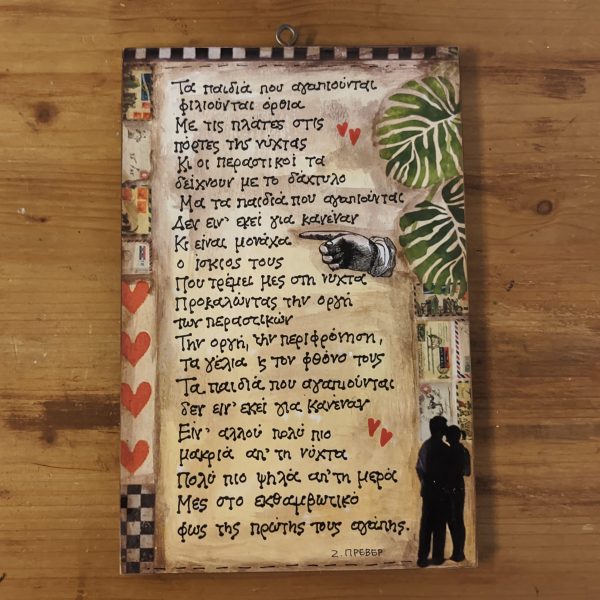 Τα παιδιά που αγαπιούνται
φιλιούνται όρθια
Με τις πλάτες στις
πόρτες της νύχτας
Κι οι περαστικοί τα
δείχνουν με το δάχτυλο
Μα τα παιδιά που αγαπιούνται
Δεν ειν' εκεί για κανέναν
Κι είναι μονάχα
ο ίσκιος τους
Που τρέμει μες στη νύχτα
Προκαλώντας την οργή
των περαστικών
Την οργή, την περιφρόνηση,
τα γέλια ϗ τον φθόνο τους
Τα παιδιά που αγαπιούνται
δεν ειν' εκεί για κανέναν
Ειν' αλλού πολύ πιο
μακριά απ' τη νύχτα
Πολύ πιο ψηλά απ' τη μερά
Μες στο εκθαμβωτικό
φως της πρώτης τους αγάπης.
Ζ. ΠΡΕΒΕΡ